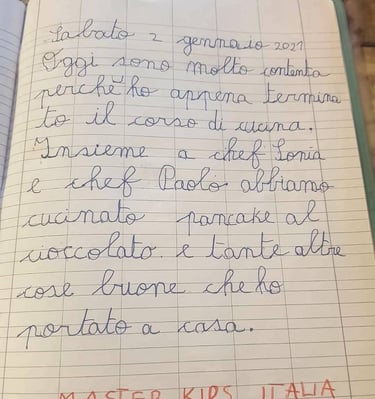 Sabato 2 gennaio 2021
Oggi sono molto contenta
perchè ho appena termina
to il corso di cucina.
Insieme a chef Sonia
e chef Paolo abbiamo
cucinato pancake al
cioccolato e tante altre
cose buone che ho
portato a casa.
MASTER KIDS ITALIA